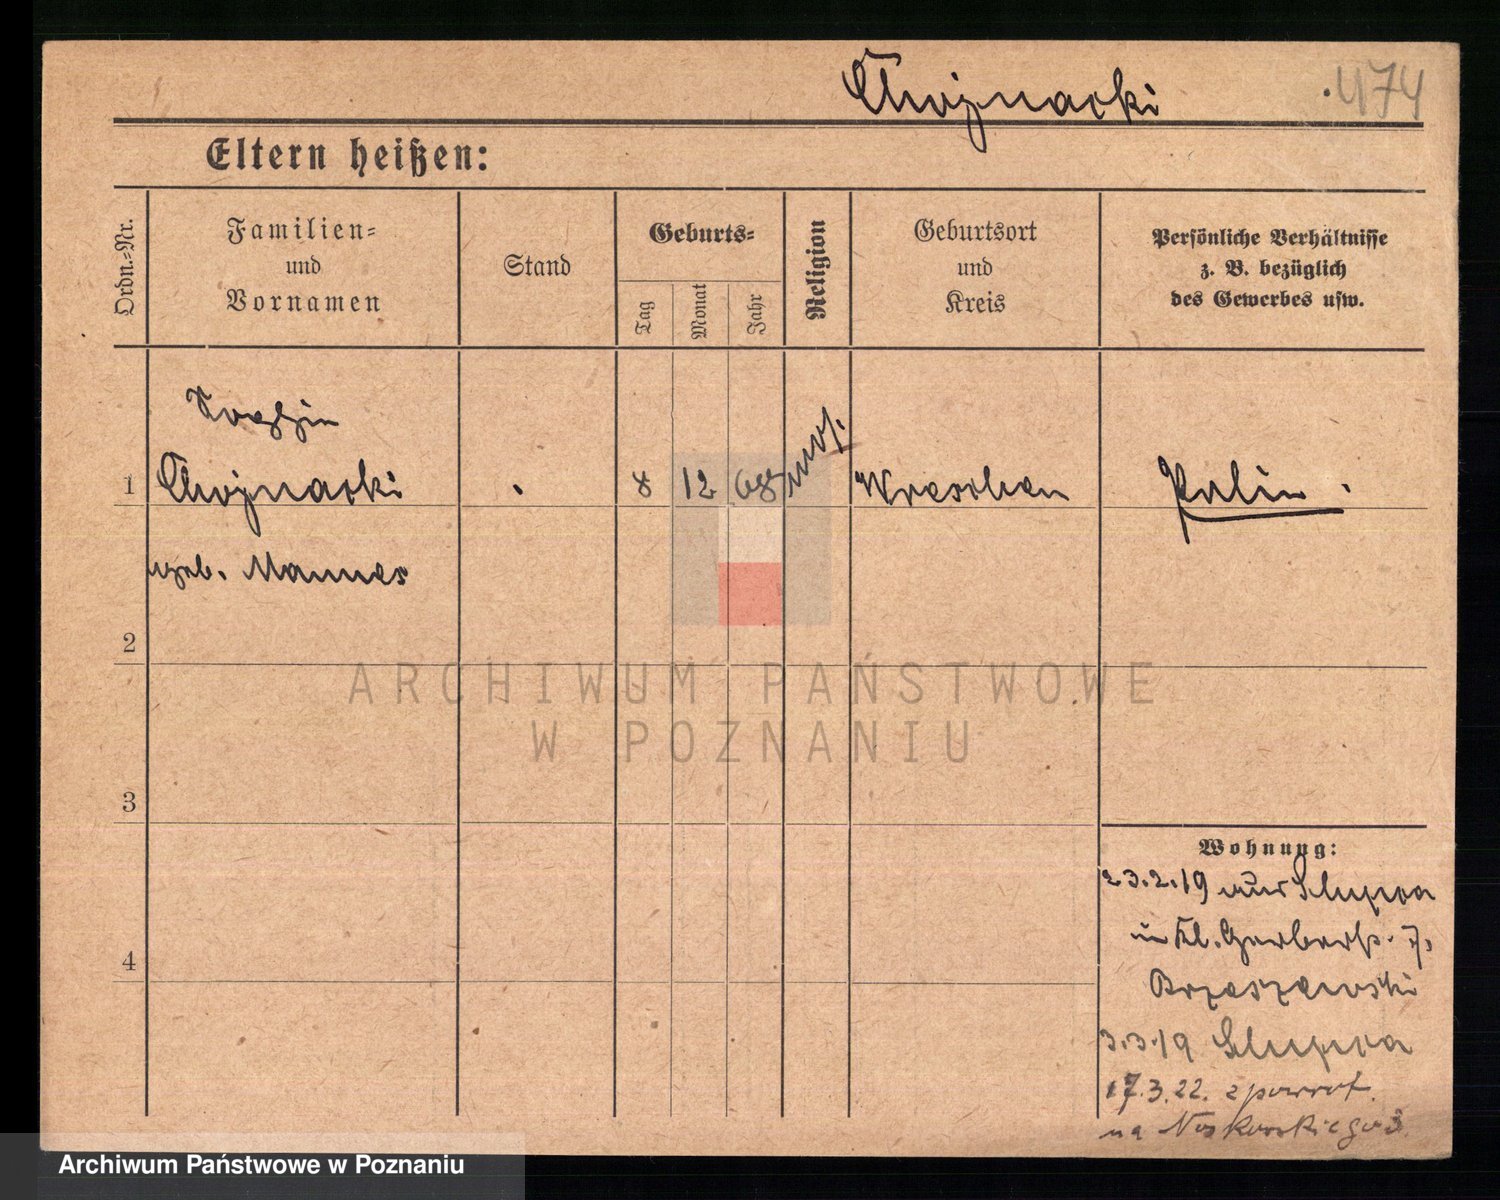 Chojnacki
474
Eltern heißen:
Ordn.-Nr.
Familien-
und
Vornamen
Stand
Geburts-
Tag
Monat
Jahr
Religion
Geburtsort
und
Kreis
Persönliche Verhältnisse
z. B. bezüglich
des Gewerbes usw.
1 Chojnacki 8 12 68 Wreschen Polin.
geb. Mannes
2
3
4
Wohnung:
23.2.19 aus Slupca
in Kl. Gerberstr. 7.
Brzeszewski
3.3.19 Slupca
17.3.22. z powrot.
na Noskowskiego 3.
ARCHIWUM PAŃSTWOWE
W POZNANIU
Archiwum Państwowe w Poznaniu